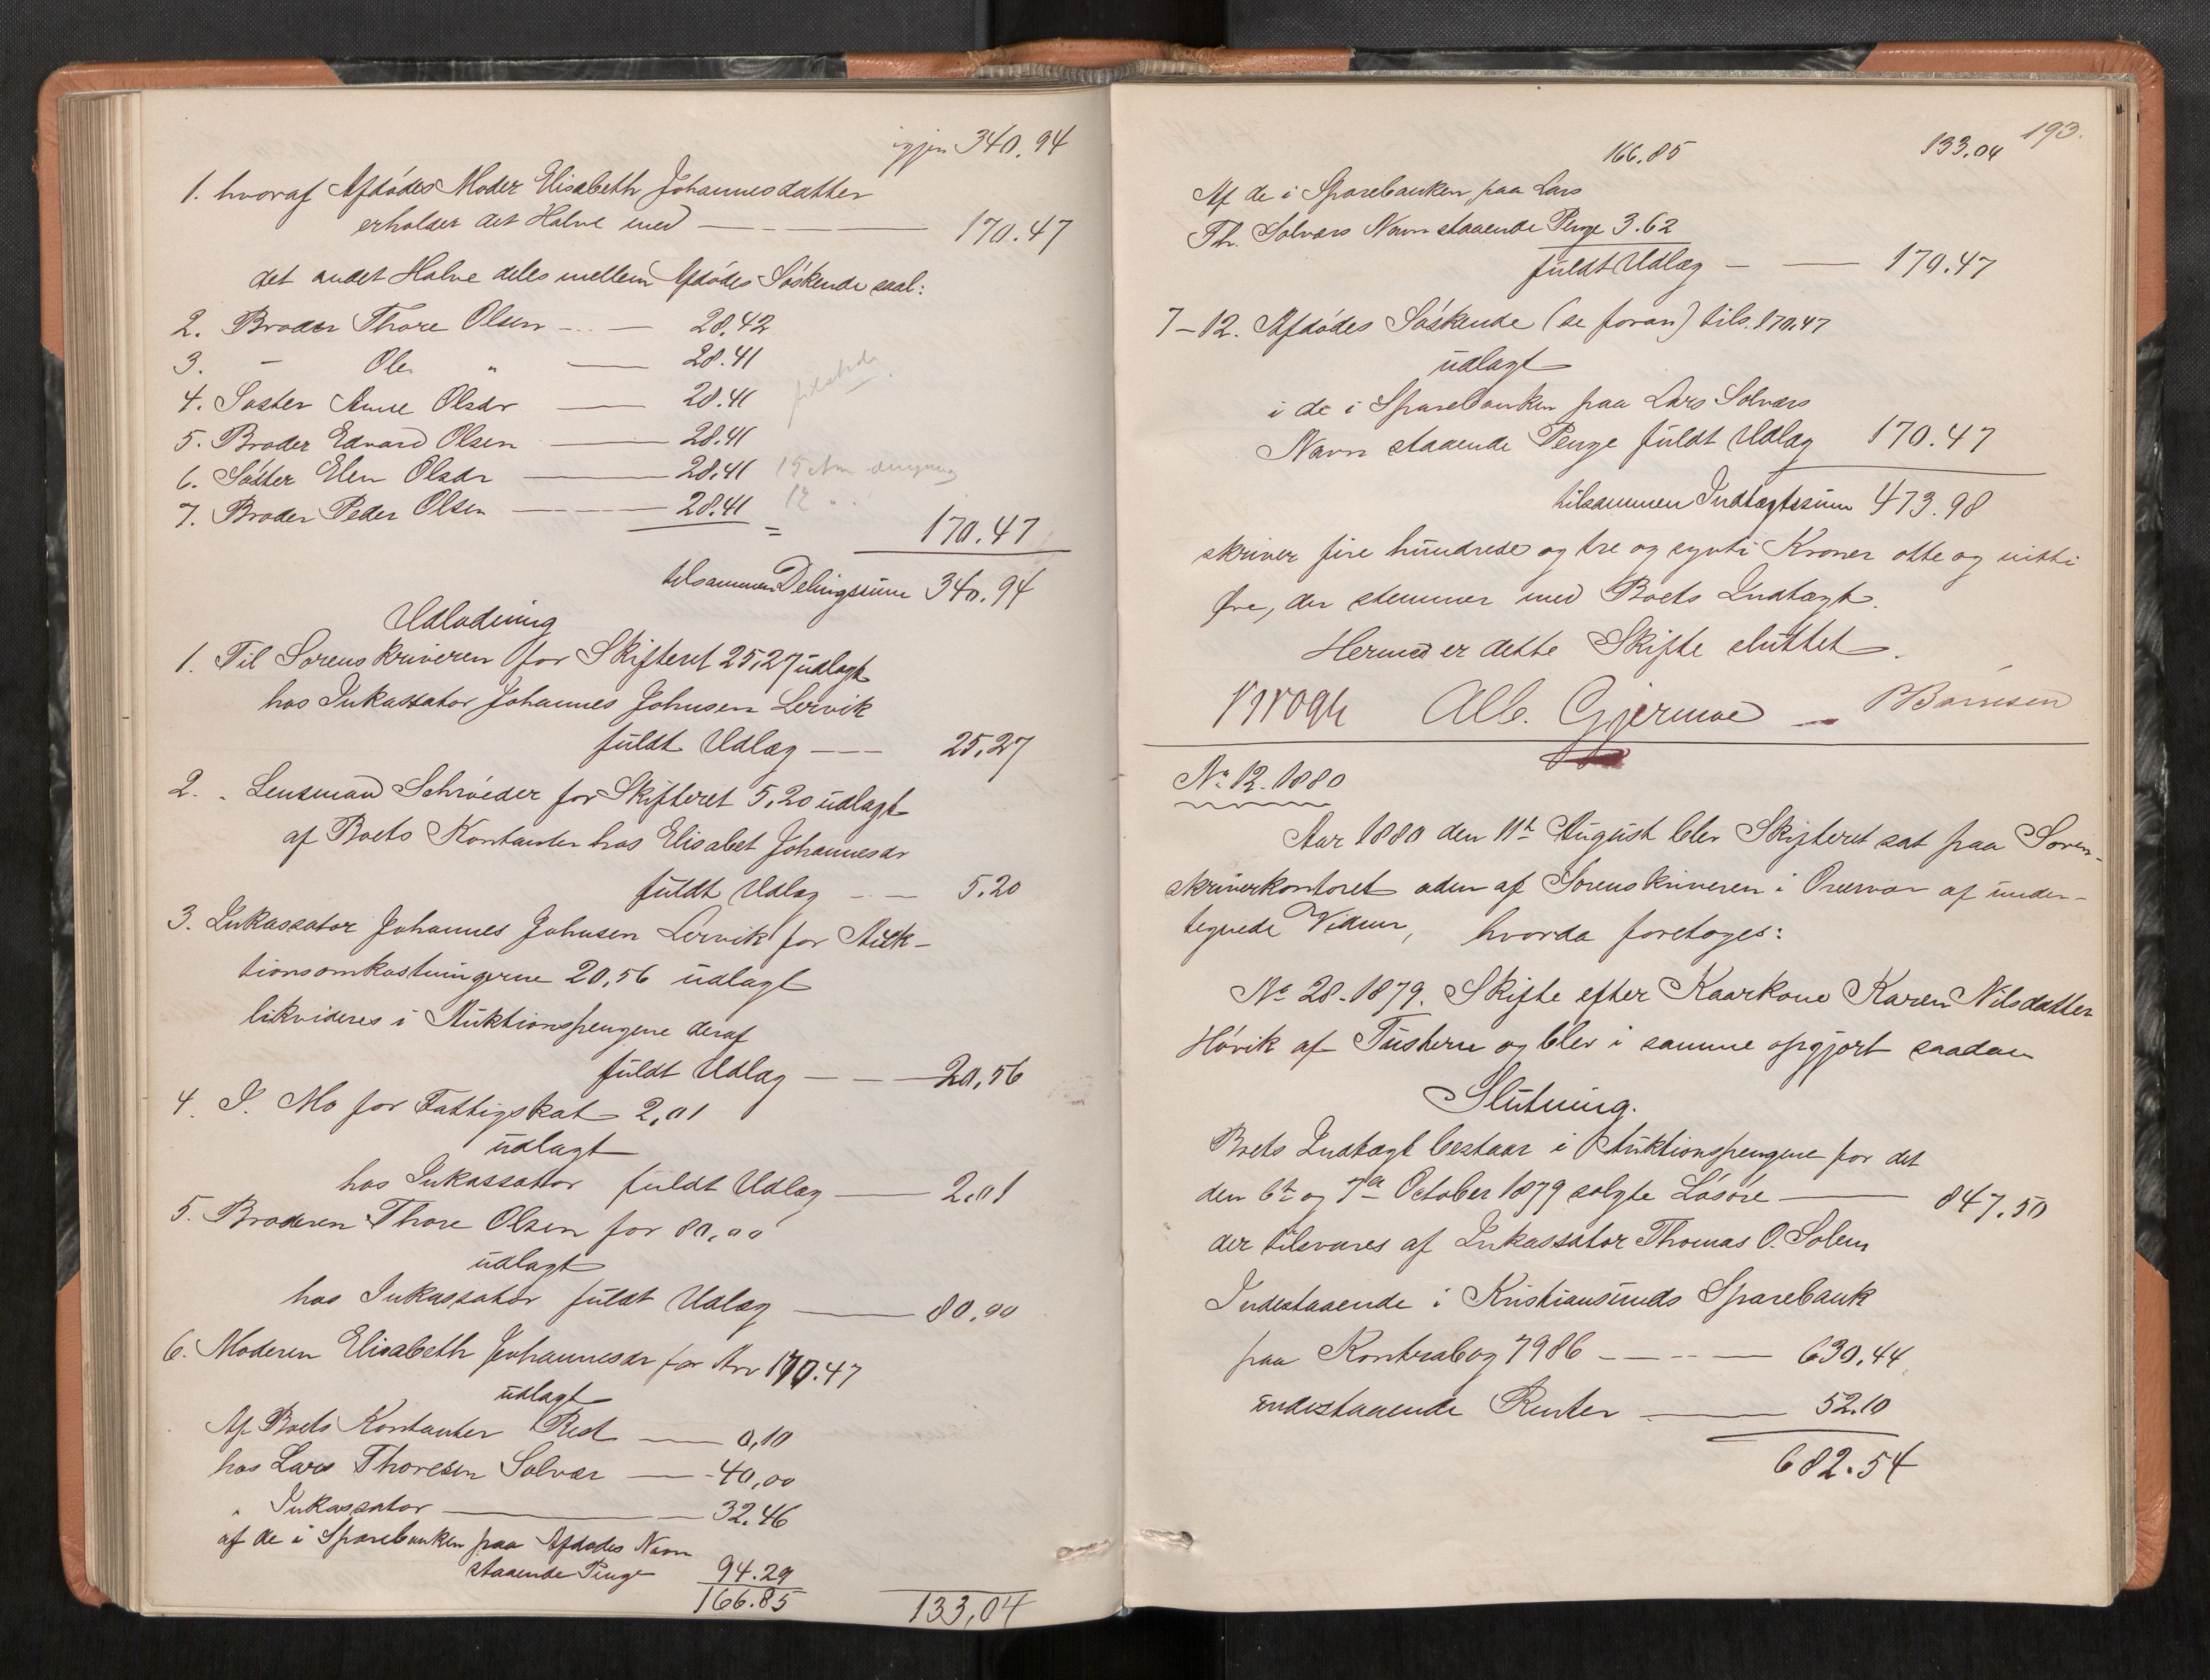 igjen 340.94
1. hvoraf Afdødes Moder Elisabeth Johannesdatter
erholder det Halve med — - — 170.47
det andet Halve deles mellem Afdødes Søskende saal:
2. Broder Thore Olsen - — 28.42
3. — Ole " — 28.41
4. Søster Anne Olsdr — 28.41
5. Broder Edvard Olsen — 28.41
6. Søster Elen Olsdr — 28.41 15 Aar
7. Broder Peder Olsen — 28.41 12 "
= 170.47
tilsammen Delingssum 340.94
Udlodning
1. Til Sorenskriveren for Skifteret 25,27 udlagt
hos Inkassator Johannes Johnsen Lervik
fuldt Udlæg — 25,27
2. " Lensmand Schrøder for Skifteret 5,20 udlagt
af Boets Kontanter hos Elisabet Johannesdr
fuldt Udlæg — 5.20
3. Inkassator Johannes Johnsen Lervik for Auk-
tionsomkostningerne 20,56 udlagt
likvideres i Auktionspengene deraf
fuldt Udlæg — 20,56
4. I. Mo for Fattigskat 2,01
udlagt
hos Inkassator fuldt Udlæg — 2,01
5. Broderen Thore Olsen for 80,00
udlagt
hos Inkassator fuldt Udlæg — 80,00
6. Moderen Elisabeth Johannesdr for Arv 170.47
udlagt
Af Boets Kontanter Rest — 0,10
hos Lars Thoresen Solvær — 40,00
" Inkassator — 32.46
af de i Sparebanken paa Afdødes Navn
staaende Penge 94.29
166.85 133,04
193.
166.85 133.04
Af de i Sparebanken paa Lars
Th. Solværs Navn staaende Penge 3.62
fuldt Udlæg — — 170.47
7-12. Afdødes Søskende (se foran) tils. 170.47
udlagt
i de i Sparebanken paa Lars Solværs
Navn staaende Penge fuldt Udlæg 170.47
tilsammen Indtægtssum 473.98
skriver fire hundrede og tre og sytti Kroner otte og nitti
Øre, der stemmer med Boets Indtægt.
Hermed er dette Skifte sluttet.
Krogh Alb. Gjermoe — Børresen
No 12. 1880
Aar 1880 den 11te August blev Skifteret sat paa Soren-
skriverkontoret
 af Sorenskriveren i Overvær af under-
tegnede Vidner, hvorda foretoges:
No 28-1879. Skifte efter Kaarkone Karen Nilsdatter
Høvik af Tustern og blev i samme opgjort saadan
Slutning.
Boets Indtægt bestaar i Auktionspengene for det
den 6te og 7de October 1879 solgte Løsøre — 847.50
der tilsvares af Inkassator Thomas O. Solem
Indestaaende i Kristiansunds Sparebank
paa Kontrabog 7986 — 630,44
indestaaende Renter — 52.10
682.54